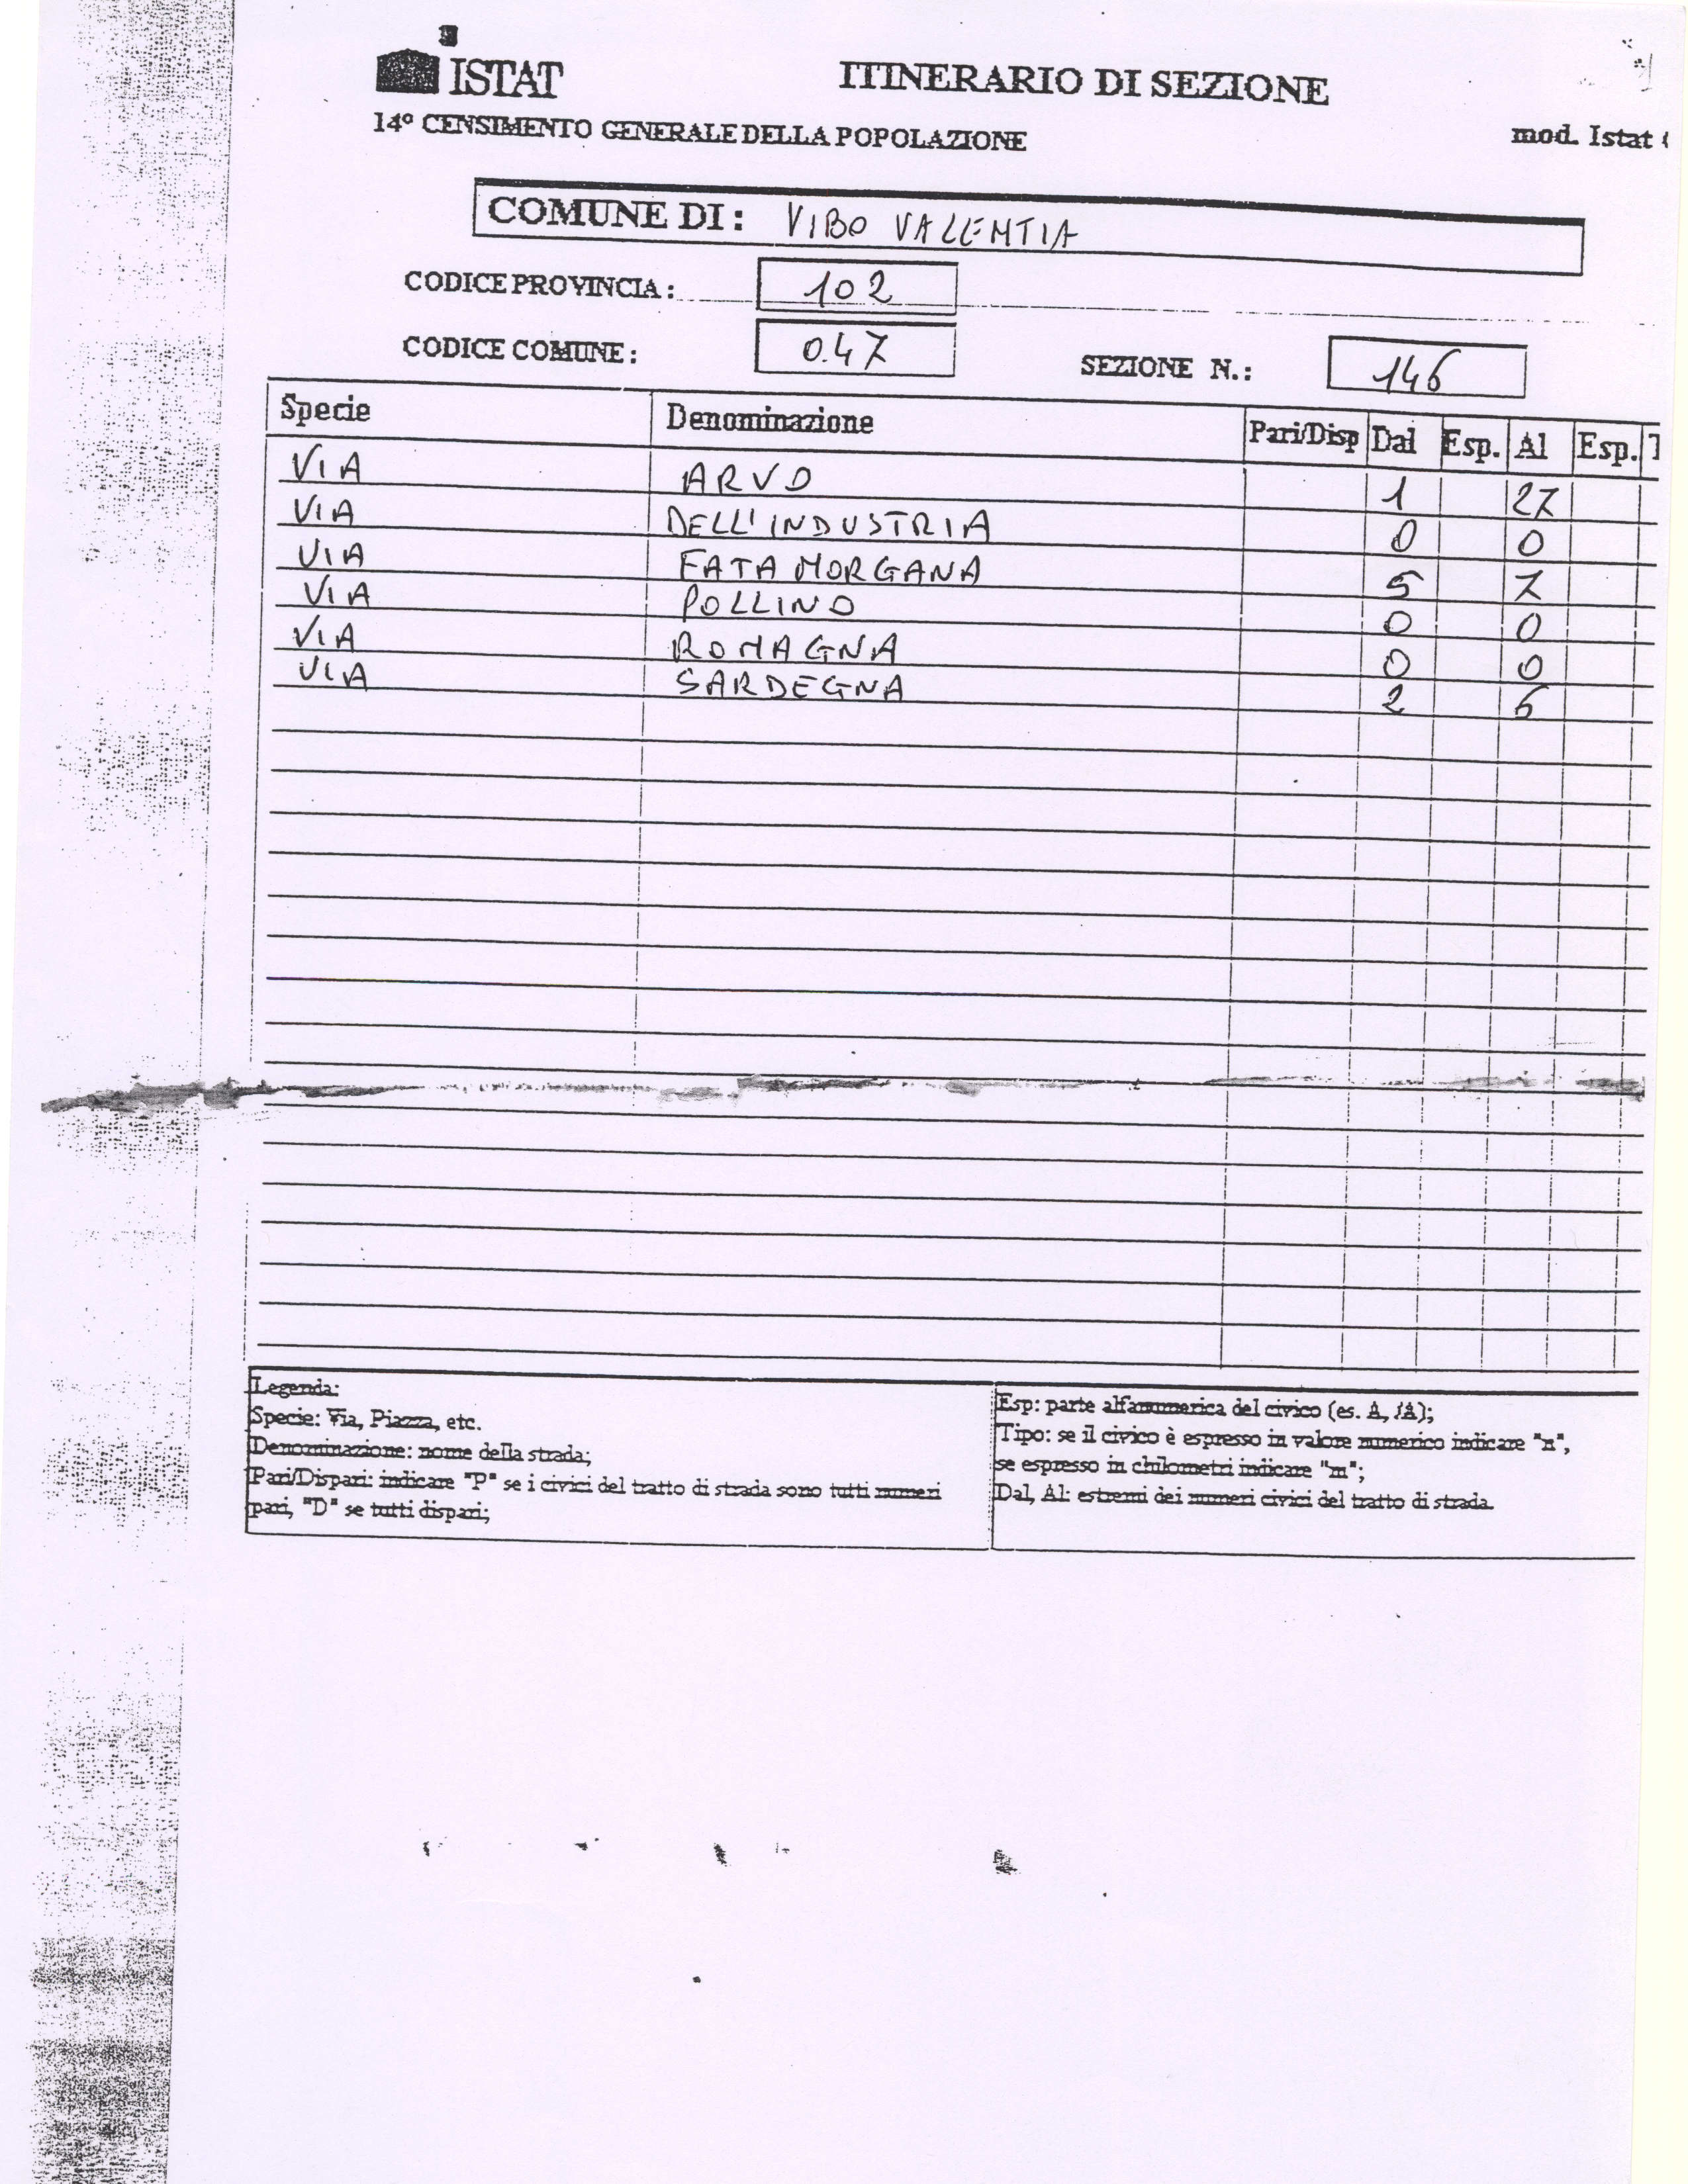 ISTAT
ITINERARIO DI SEZIONE
14° CENSIMENTO GENERALE DELLA POPOLAZIONE
mod. Istat
COMUNE DI: VIBO VALLENTIA
CODICE PROVINCIA: 102
CODICE COMUNE: 047 SEZIONE N.: 146
Specie Denominazione Pari/Disp Dal Esp. Al Esp.
VIA ARVO 1 27
VIA DELL'INDUSTRIA 0 0
VIA FATA MORGANA 5 7
VIA POLLINO 0 0
VIA ROMAGNA 0 0
VIA SARDEGNA 2 6
Legenda:
Specie: Via, Piazza, etc.
Denominazione: nome della strada;
Pari/Dispari: indicare "P" se i civici del tratto di strada sono tutti numeri
pari, "D" se tutti dispari;
Esp: parte alfanumerica del civico (es. A, /A);
Tipo: se il civico è espresso in valore numerico indicare "n",
se espresso in chilometri indicare "m";
Dal, Al: estremi dei numeri civici del tratto di strada.